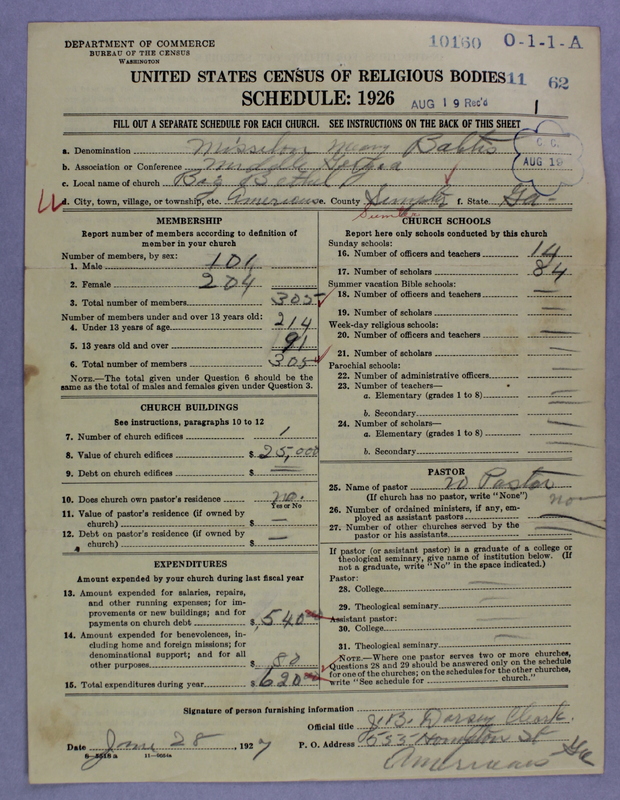 DEPARTMENT OF COMMERCE
BUREAU OF THE CENSUS
WASHINGTON
10160 0-1-1-A
UNITED STATES CENSUS OF RELIGIOUS BODIES 11 62
SCHEDULE: 1926 AUG 19 Rec'd 1
FILL OUT A SEPARATE SCHEDULE FOR EACH CHURCH. SEE INSTRUCTIONS ON THE BACK OF THIS SHEET
a. Denomination
b. Association or Conference Middle
c. Local name of church Bethel
AUG 19
d. City, town, village, or township, etc. Americus e. County Sumpter f. State Ga-
Sumter
MEMBERSHIP
Report number of members according to definition of
member in your church
Number of members, by sex:
1. Male 101
2. Female 204
3. Total number of members 305
Number of members under and over 13 years old:
4. Under 13 years of age 214
5. 13 years old and over 91
6. Total number of members 305
NOTE.—The total given under Question 6 should be
same as the total of males and females given under Question 3.
CHURCH BUILDINGS
See instructions, paragraphs 10 to 12
7. Number of church edifices 1
8. Value of church edifices $ 25,000
9. Debt on church edifices $
10. Does church own pastor's residence no.
Yes or No
11. Value of pastor's residence (if owned by
church) $ —
12. Debt on pastor's residence (if owned by
church) $ —
EXPENDITURES
Amount expended by your church during last fiscal year
13. Amount expended for salaries, repairs,
and other running expenses; for im-
provements or new buildings; and for
payments on church debt $ 540
14. Amount expended for benevolences, in-
cluding home and foreign missions; for
denominational support; and for all
other purposes $ 80
15. Total expenditures during year $ 620
CHURCH SCHOOLS
Report here only schools conducted by this church
Sunday schools:
16. Number of officers and teachers 14
17. Number of scholars 84
Summer vacation Bible schools:
18. Number of officers and teachers —
19. Number of scholars —
Week-day religious schools:
20. Number of officers and teachers —
21. Number of scholars —
Parochial schools:
22. Number of administrative officers —
23. Number of teachers—
a. Elementary (grades 1 to 8) —
b. Secondary —
24. Number of scholars—
a. Elementary (grades 1 to 8) —
b. Secondary —
PASTOR
25. Name of pastor no Pastor
(If church has no pastor, write "None") no
26. Number of ordained ministers, if any, em-
ployed as assistant pastors
27. Number of other churches served by the
pastor or his assistants
If pastor (or assistant pastor) is a graduate of a college or
theological seminary, give name of institution below. (If
not a graduate, write "No" in the space indicated.)
Pastor:
28. College —
29. Theological seminary —
Assistant pastor:
30. College —
31. Theological seminary —
NOTE.—Where one pastor serves two or more churches,
Questions 28 and 29 should be answered only on the schedule
for one of the churches; on the schedules for the other churches,
write "See schedule for church."
Signature of person furnishing information
Official title J. B. Dorsey Clerk.
Date June 28, 1927 P. O. Address St
Americus Ga
8-5518a 11-9064a